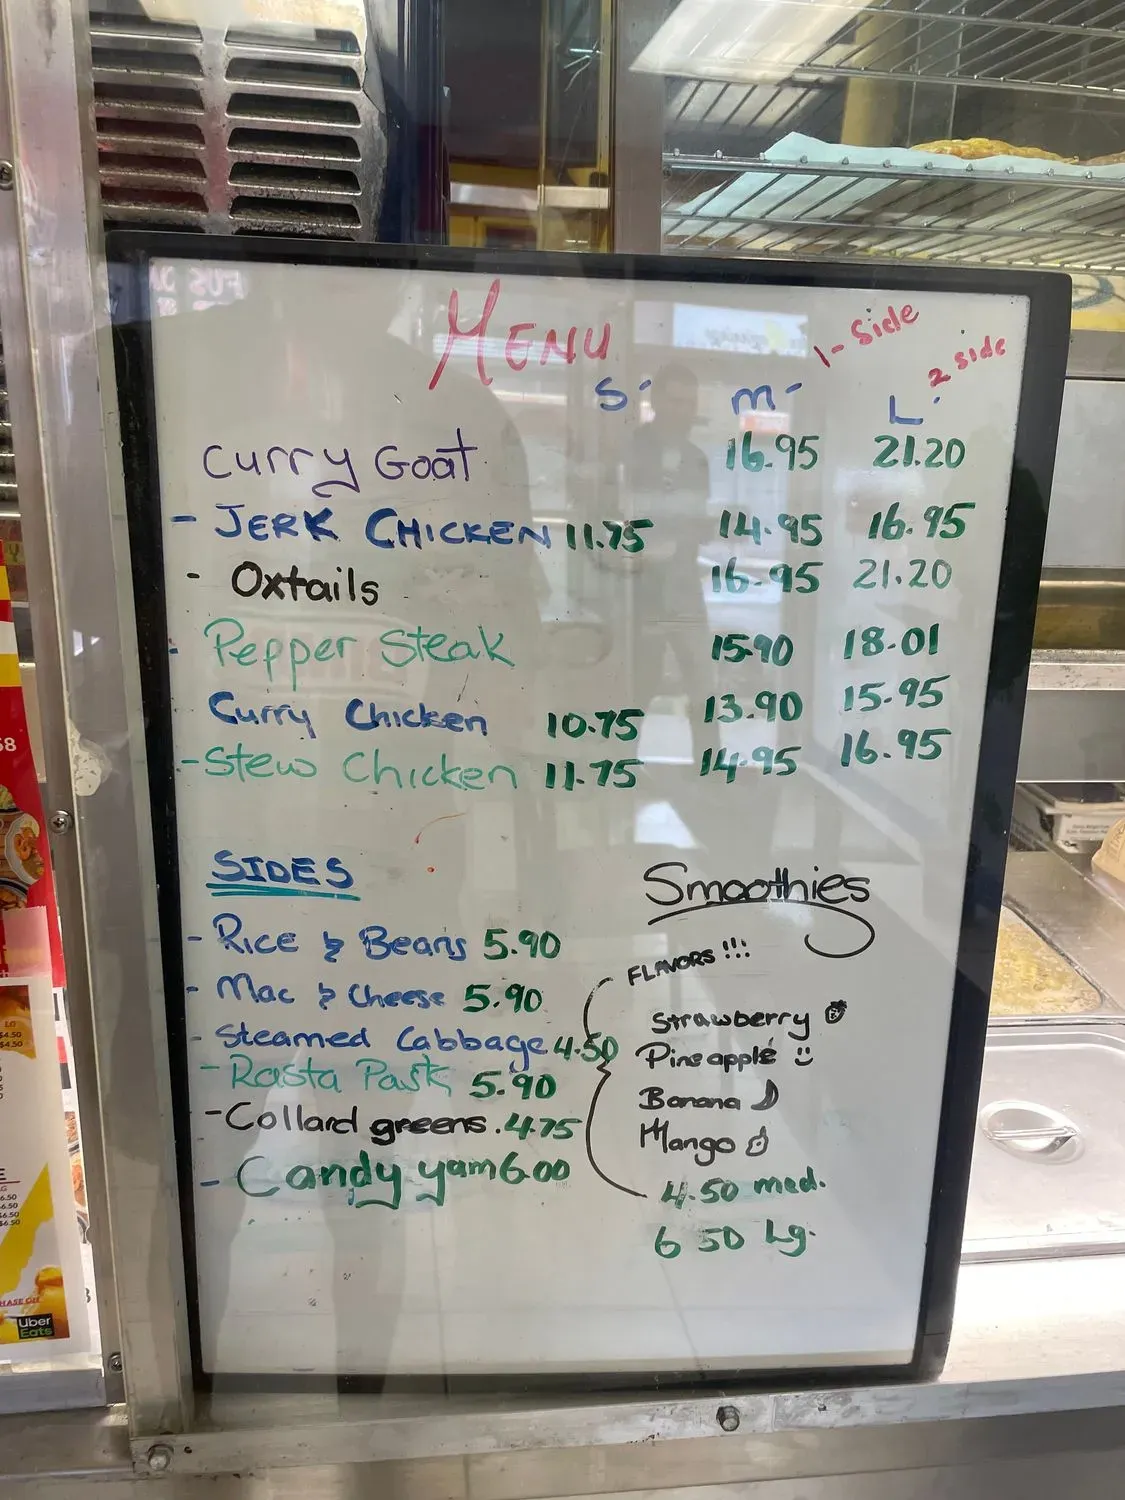 MENU
1-Side
2 side
S- M- L-
Curry Goat 16.95 21.20
- JERK CHICKEN 11.75 14.95 16.95
- Oxtails 16.95 21.20
- Pepper Steak 15.90 18.01
Curry Chicken 10.75 13.90 15.95
- Stew Chicken 11.75 14.95 16.95
SIDES
- Rice & Beans 5.90
- Mac & Cheese 5.90
- Steamed Cabbage 4.50
- Rasta Pasta 5.90
- Collard greens. 4.75
- Candy yam 6.00
Smoothies
FLAVORS !!!
Strawberry
Pineapple
Banana
Mango
4.50 med.
6 50 Lg.
Uber
Eats